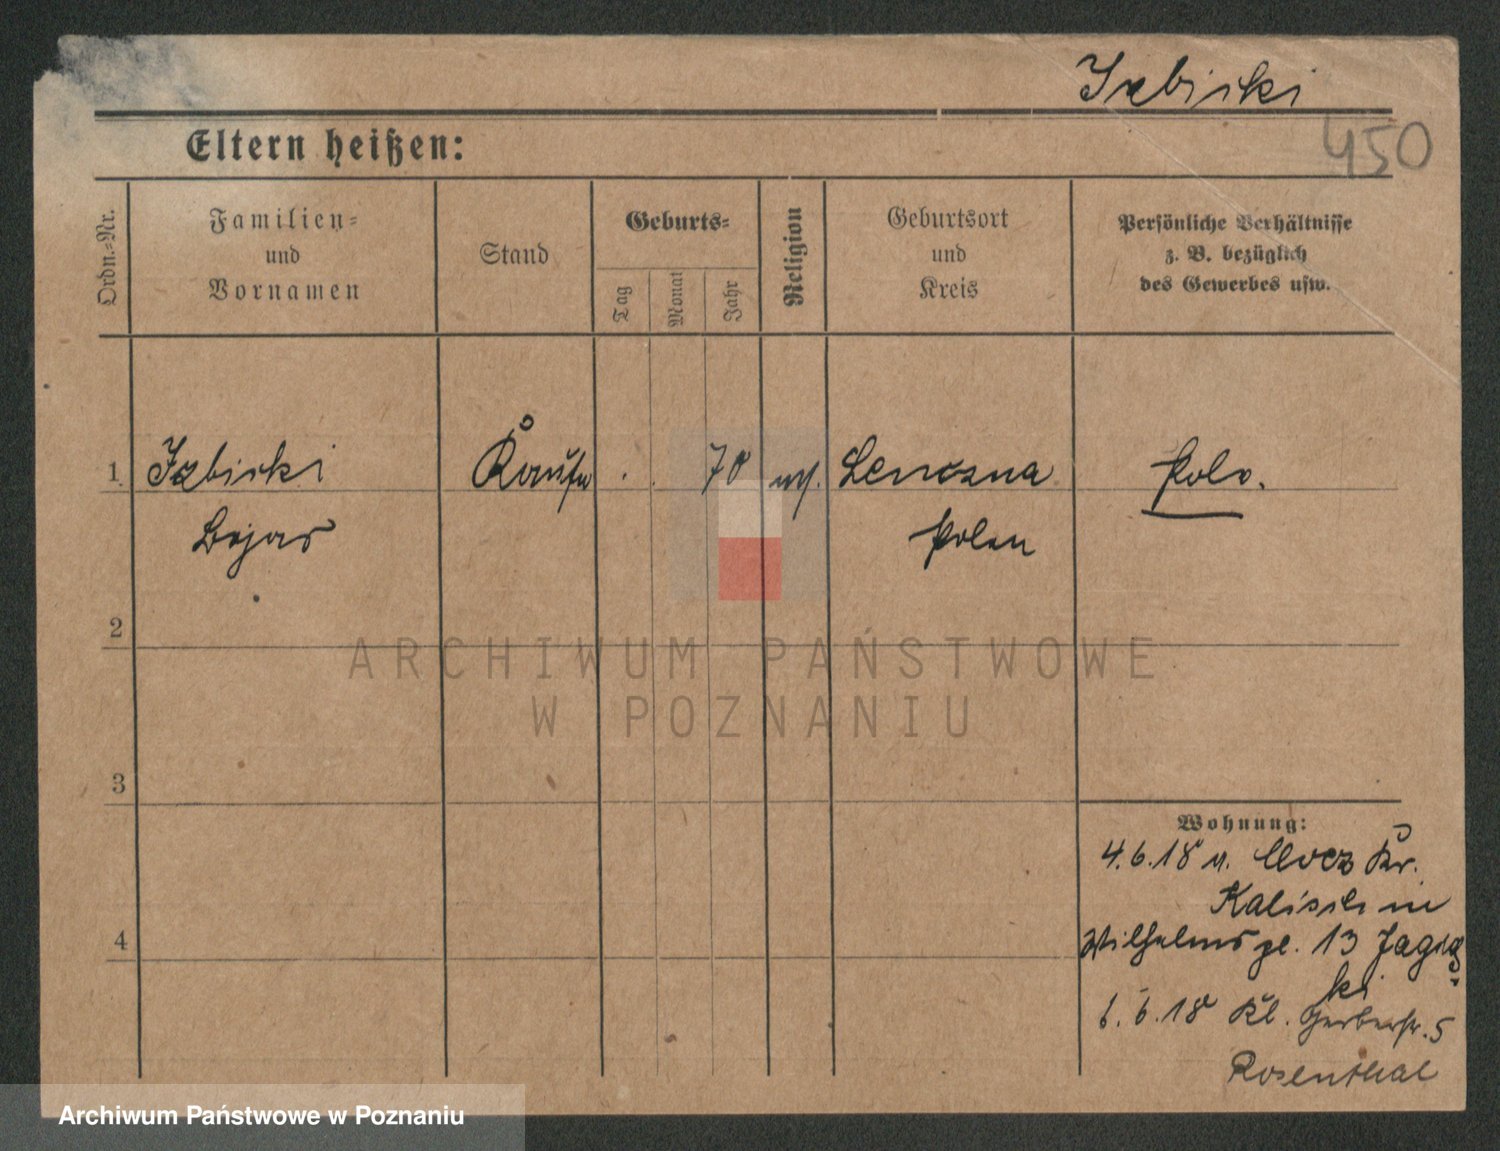 Izbicki
450
Eltern heißen:
Ordn.-Nr.
Familien-
und
Vornamen
Stand
Geburts-
Tag
Monat
Jahr
Religion
Geburtsort
und
Kreis
Persönliche Verhältnisse
z. B. bezüglich
des Gewerbes usw.
1 Izbicki 70 Lenczna Pole.
Bojas Polen
2
3
4
ARCHIWUM PAŃSTWOWE
W POZNANIU
Wohnung:
4.6.18 v. Kr.
Kalisch in
Wilhelmspl. 13
6.6.18 Kl. Gerberstr. 5
Rosenthal
Archiwum Państwowe w Poznaniu